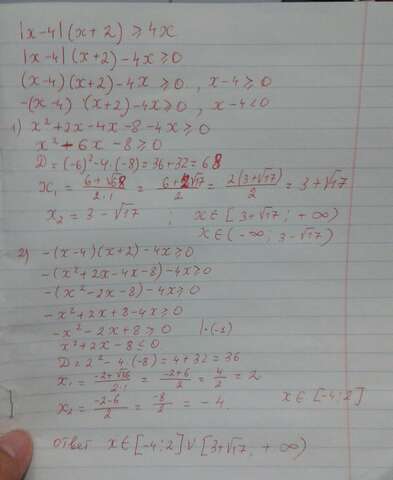 |x-4|(x+2) ≥ 4x
|x-4|(x+2)-4x ≥ 0
(x-4)(x+2)-4x ≥ 0, x-4 ≥ 0
-(x-4)(x+2)-4x ≥ 0, x-4 < 0
1) x²+2x-4x-8-4x ≥ 0
x²-6x-8 ≥ 0
D = (-6)²-4·(-8) = 36+32 = 68
x₁ = (6+√68)/(2·1) = (6+2√17)/2 = 2(3+√17)/2 = 3+√17
x₂ = 3-√17 ; x∈[3+√17; +∞)
x∈(-∞; 3-√17)
2) -(x-4)(x+2)-4x ≥ 0
-(x²+2x-4x-8)-4x ≥ 0
-(x²-2x-8)-4x ≥ 0
-x²+2x+8-4x ≥ 0
-x²-2x+8 ≥ 0 |·(-1)
x²+2x-8 ≤ 0
D = 2²-4·(-8) = 4+32 = 36
x₁ = (-2+√36)/(2·1) = (-2+6)/2 = 4/2 = 2
x₂ = (-2-6)/2 = -8/2 = -4. x∈[-4;2]
ответ x∈[-4;2]∪[3+√17; +∞)